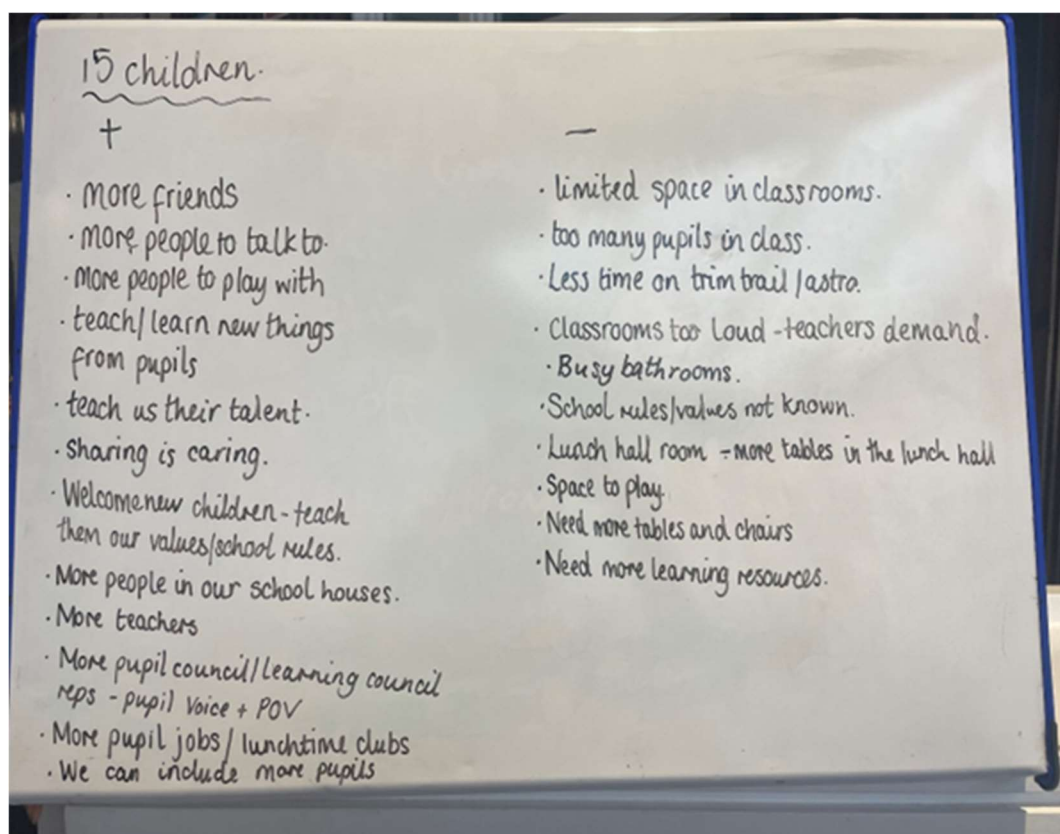 15 children.
+
· more friends
· more people to talk to.
· more people to play with
· teach/learn new things
from pupils
· teach us their talent.
· Sharing is caring.
· Welcome new children - teach
them our values/school rules.
· More people in our school houses.
· More teachers
· More pupil council/learning council
reps - pupil voice + POV
· More pupil jobs/lunchtime clubs
· We can include more pupils
−
· limited space in classrooms.
· too many pupils in class.
· Less time on trim trail/astro.
· Classrooms too loud - teachers demand.
· Busy bathrooms.
· School rules/values not known.
· Lunch hall room - more tables in the lunch hall
· Space to play.
· Need more tables and chairs
· Need more learning resources.